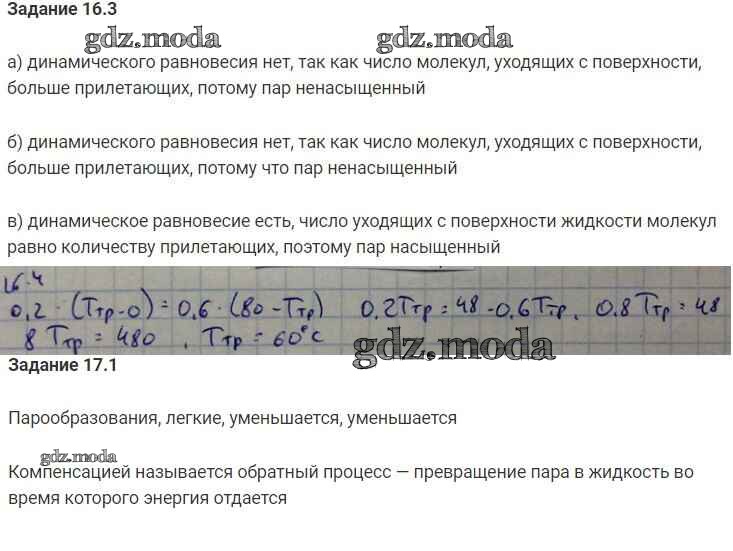 Задание 16.3
gdz.moda gdz.moda
а) динамического равновесия нет, так как число молекул, уходящих с поверхности,
больше прилетающих, потому пар ненасыщенный
б) динамического равновесия нет, так как число молекул, уходящих с поверхности,
больше прилетающих, потому что пар ненасыщенный
в) динамическое равновесие есть, число уходящих с поверхности жидкости молекул
равно количеству прилетающих, поэтому пар насыщенный
16.4
0,2 · (Tтр - 0) = 0,6 · (80 - Tтр) 0.2Tтр = 48 - 0.6Tтр, 0.8Tтр = 48
8 Tтр = 480, Tтр = 60°C
gdz.moda
Задание 17.1
Парообразования, легкие, уменьшается, уменьшается
gdz.moda
Компенсацией называется обратный процесс — превращение пара в жидкость во
время которого энергия отдается